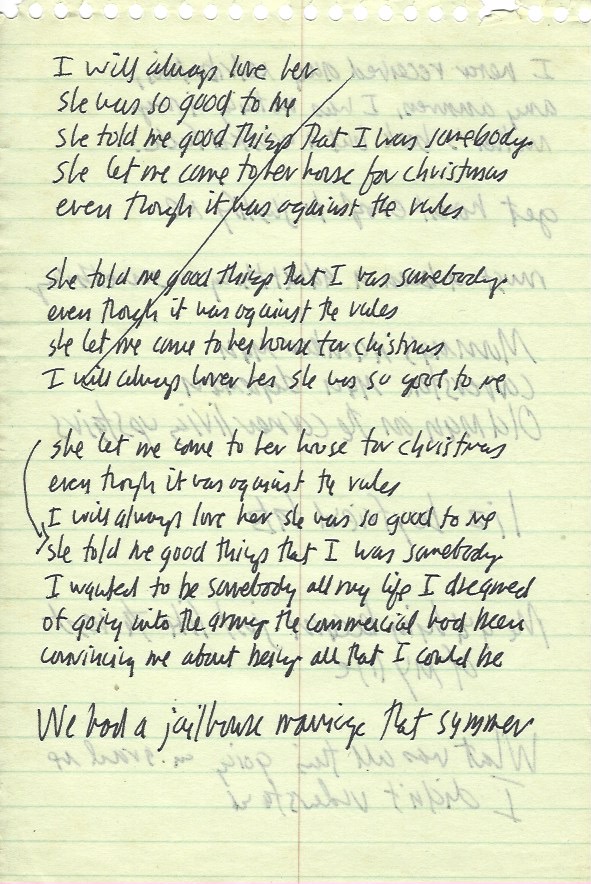 I will always love her
She was so good to me
She told me good things that I was somebody
She let me come to her house for christmas
even though it was against the rules
She told me good things that I was somebody
even though it was against the rules
she let me come to her house for chistmas
I will always lover her she was so good to me
She let me come to her house for christmas
even though it was against the rules
I will always love her she was so good to me
She told me good things that I was somebody
I wanted to be somebody all my life I dreamed
of going into the army the commercial had been
convincing me about being all that I could be
We had a jailhouse marriage that summer